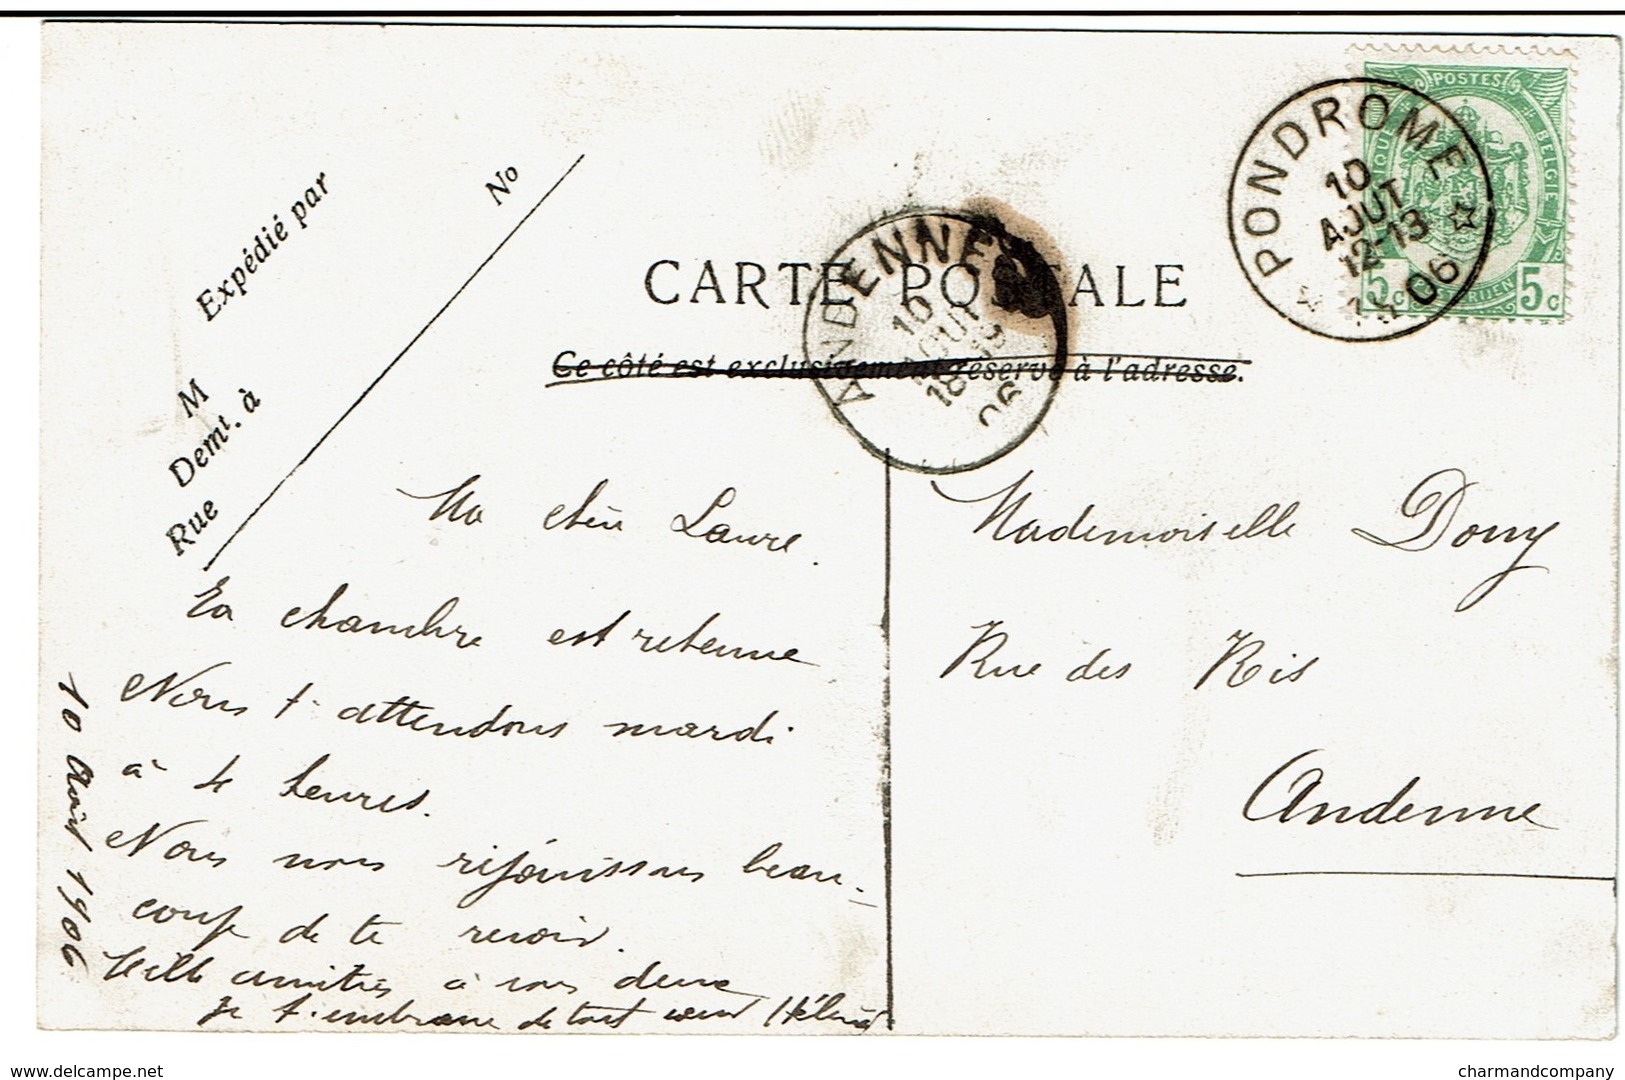 Expédié par
No
M
Demt. à
Rue
CARTE POSTALE
Ce côté est exclusivement réservé à l'adresse.
POSTES
BELGIE
5c 5c
PONDROME
10
AOUT
12-13
06
ANDENNE
10
AOUT
18
06
Ma chère Laure.
La chambre est retenue
Nous t'attendons mardi
à 4 heures.
Nous nous réjouissons beau-
coup de te revoir.
Mille amitiés à vous deux
Je t'embrasse de tout coeur Hélène
10 Août 1906
Mademoiselle Dony
Rue des Ris
Andenne
www.delcampe.net
charmandcompany